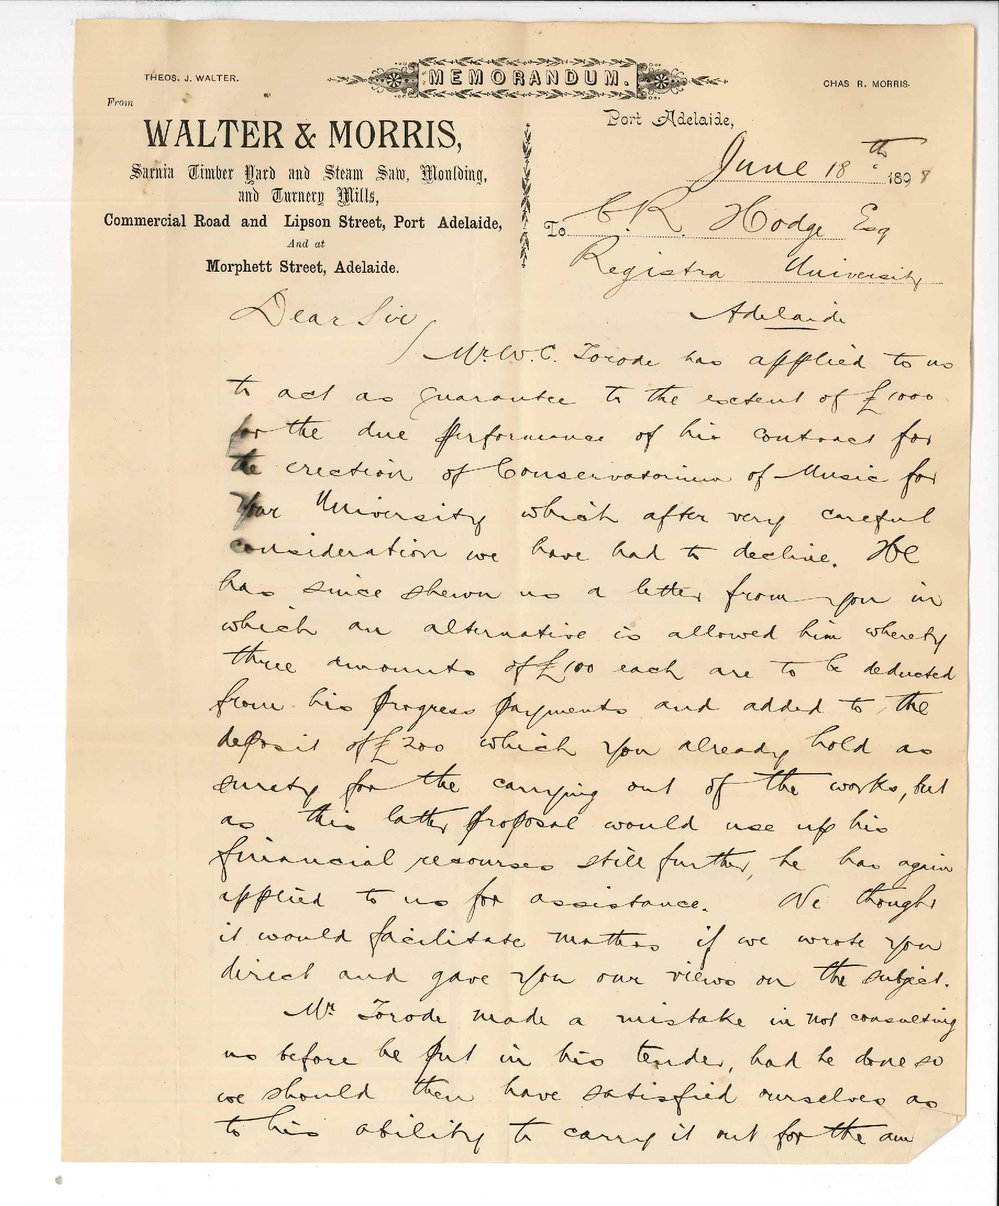 THEOS. J. WALTER.
MEMORANDUM.
CHAS R. MORRIS.
From
WALTER & MORRIS,
Sarnia Timber Yard and Steam Saw, Moulding,
and Turnery Mills,
Commercial Road and Lipson Street, Port Adelaide,
And at
Morphett Street, Adelaide.
Port Adelaide,
June 18th 1898
To C. R. Hodge Esq
Registra University
Adelaide
Dear Sir
Mr. W. C. Torode has applied to us
to act as guarantee to the extent of £1000
for the due performance of his contract for
the erection of Conservatorium of Music for
Your University which after very careful
consideration we have had to decline. He
has since shewn us a letter from you in
which an alternative is allowed him whereby
three amounts of £100 each are to be deducted
from his progress payments and added to the
deposit of £200 which you already hold as
surety for the carrying out of the works, but
as this latter proposal would use up his
financial recourses still further, he has again
applied to us for assistance. We thought
it would facilitate matters if we wrote you
direct and gave you our views on the subject.
Mr Torode made a mistake in not consulting
us before he put in his tender, had he done so
we should then have satisfied ourselves as
to his ability to carry it out for the am